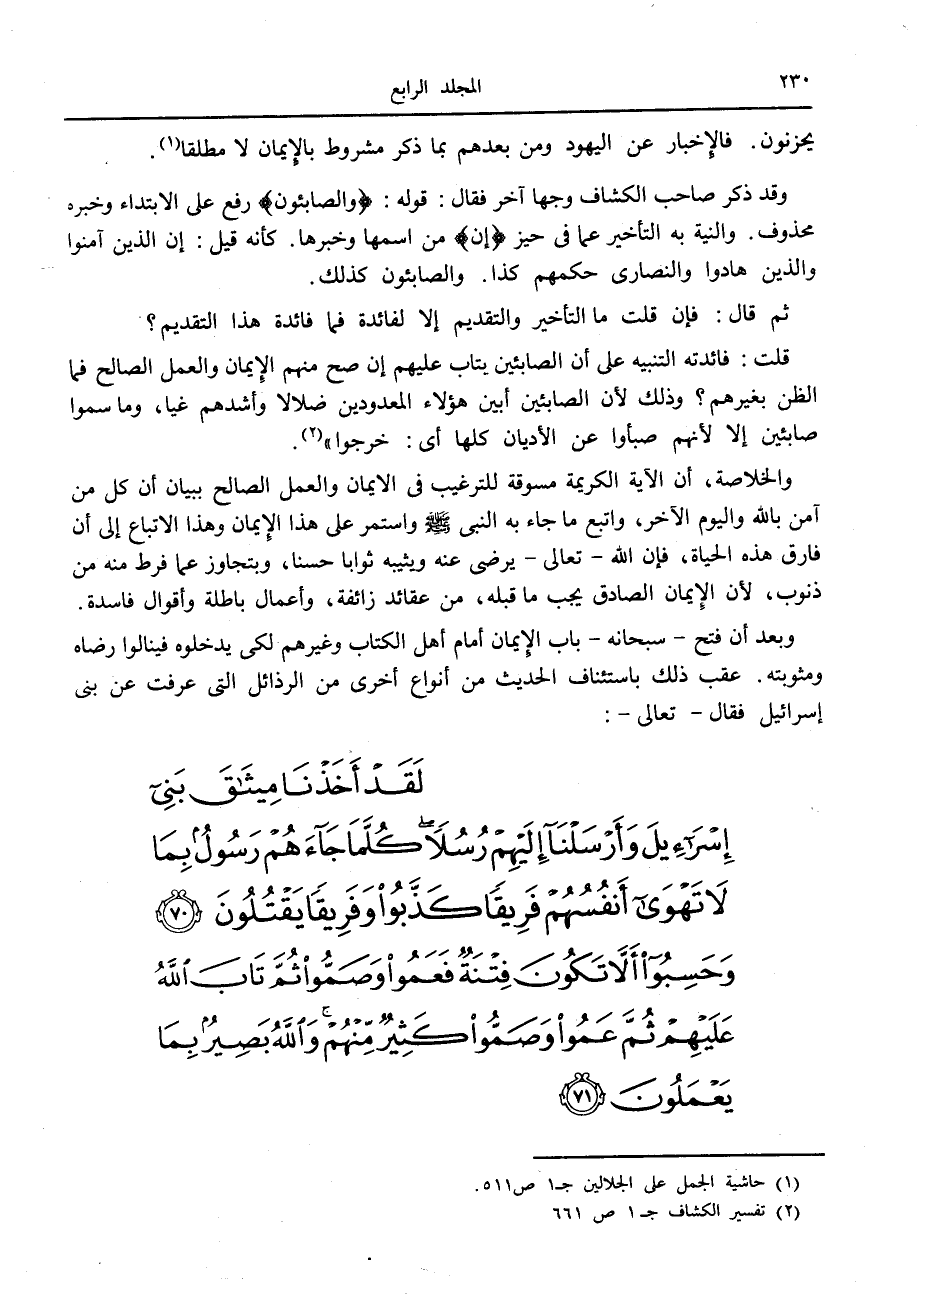 ٢٣٠
المجلد الرابع
يحزنون. فالإخبار عن اليهود ومن بعدهم بما ذكر مشروط بالإيمان لا مطلقا(١).
وقد ذكر صاحب الكشاف وجها آخر فقال: قوله: ﴿والصابئون﴾ رفع على الابتداء وخبره
محذوف. والنية به التأخير عما فى حيز ﴿إن﴾ من اسمها وخبرها. كأنه قيل: إن الذين آمنوا
والذين هادوا والنصارى حكمهم كذا. والصابئون كذلك.
ثم قال: فإن قلت ما التأخير والتقديم إلا لفائدة فما فائدة هذا التقديم؟
قلت: فائدته التنبيه على أن الصابئين يتاب عليهم إن صح منهم الإيمان والعمل الصالح فما
الظن بغيرهم؟ وذلك لأن الصابئين أبين هؤلاء المعدودين ضلالا وأشدهم غيا، وما سموا
صابئين إلا لأنهم صبأوا عن الأديان كلها أى: خرجوا»(٢).
والخلاصة، أن الآية الكريمة مسوقة للترغيب فى الايمان والعمل الصالح ببيان أن كل من
آمن بالله واليوم الآخر، واتبع ما جاء به النبى ﷺ واستمر على هذا الإيمان وهذا الاتباع إلى أن
فارق هذه الحياة، فإن الله - تعالى - يرضى عنه ويثيبه ثوابا حسنا، ويتجاوز عما فرط منه من
ذنوب، لأن الإيمان الصادق يجب ما قبله، من عقائد زائفة، وأعمال باطلة وأقوال فاسدة.
وبعد أن فتح - سبحانه - باب الإيمان أمام أهل الكتاب وغيرهم لكى يدخلوه فينالوا رضاه
ومثوبته. عقب ذلك باستئناف الحديث من أنواع أخرى من الرذائل التى عرفت عن بنى
إسرائيل فقال - تعالى -:
لَقَدْ أَخَذْنَا مِيثَٰقَ بَنِىٓ
إِسْرَٰٓءِيلَ وَأَرْسَلْنَآ إِلَيْهِمْ رُسُلًا ۖ كُلَّمَا جَآءَهُمْ رَسُولٌۢ بِمَا
لَا تَهْوَىٰٓ أَنفُسُهُمْ فَرِيقًا كَذَّبُوا۟ وَفَرِيقًا يَقْتُلُونَ ٧٠
وَحَسِبُوٓا۟ أَلَّا تَكُونَ فِتْنَةٌ فَعَمُوا۟ وَصَمُّوا۟ ثُمَّ تَابَ ٱللَّهُ
عَلَيْهِمْ ثُمَّ عَمُوا۟ وَصَمُّوا۟ كَثِيرٌ مِّنْهُمْ ۚ وَٱللَّهُ بَصِيرٌۢ بِمَا
يَعْمَلُونَ ٧١
(١) حاشية الجمل على الجلالين جـ١ ص٥١١.
(٢) تفسير الكشاف جـ ١ ص ٦٦١